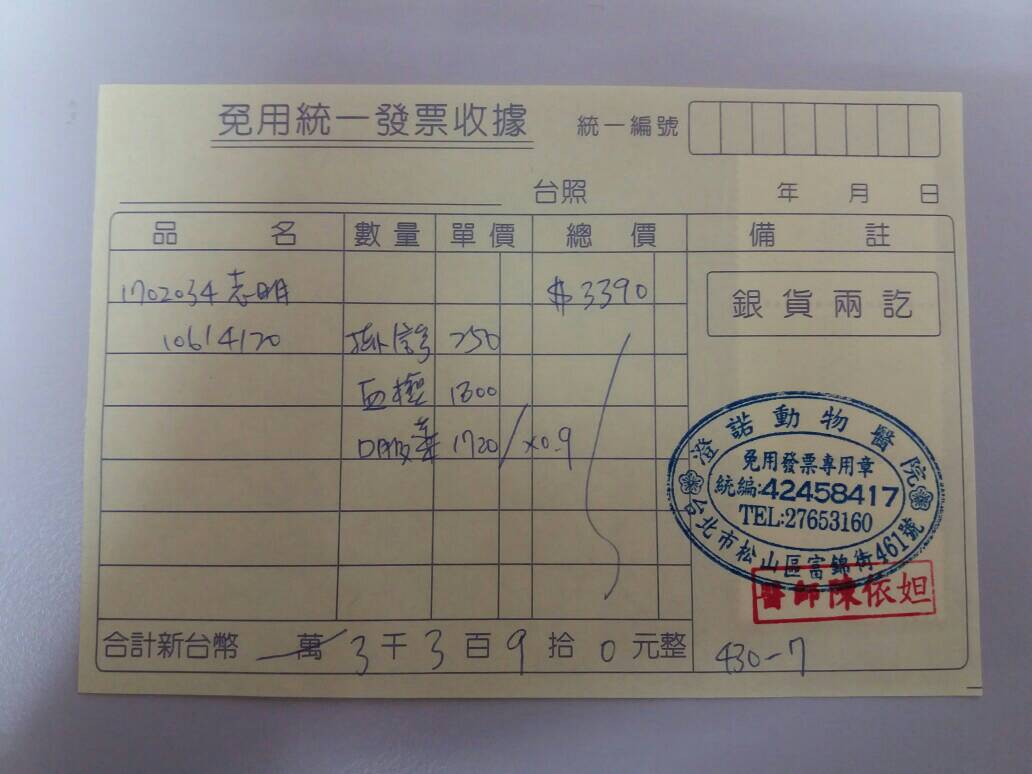 免用統一發票收據 統一編號
台照 年 月 日
品 名 數量 單價 總 價 備 註
1702034 志明 $3390 銀貨兩訖
10614120 掛號 250
血檢 1300
口服藥 1720 / x0.9
澄諾動物醫院
免用發票專用章
統編:42458417
TEL:27653160
台北市松山區富錦街461號
醫師陳依妲
合計新台幣 萬 3 千 3 百 9 拾 0 元整 430-7